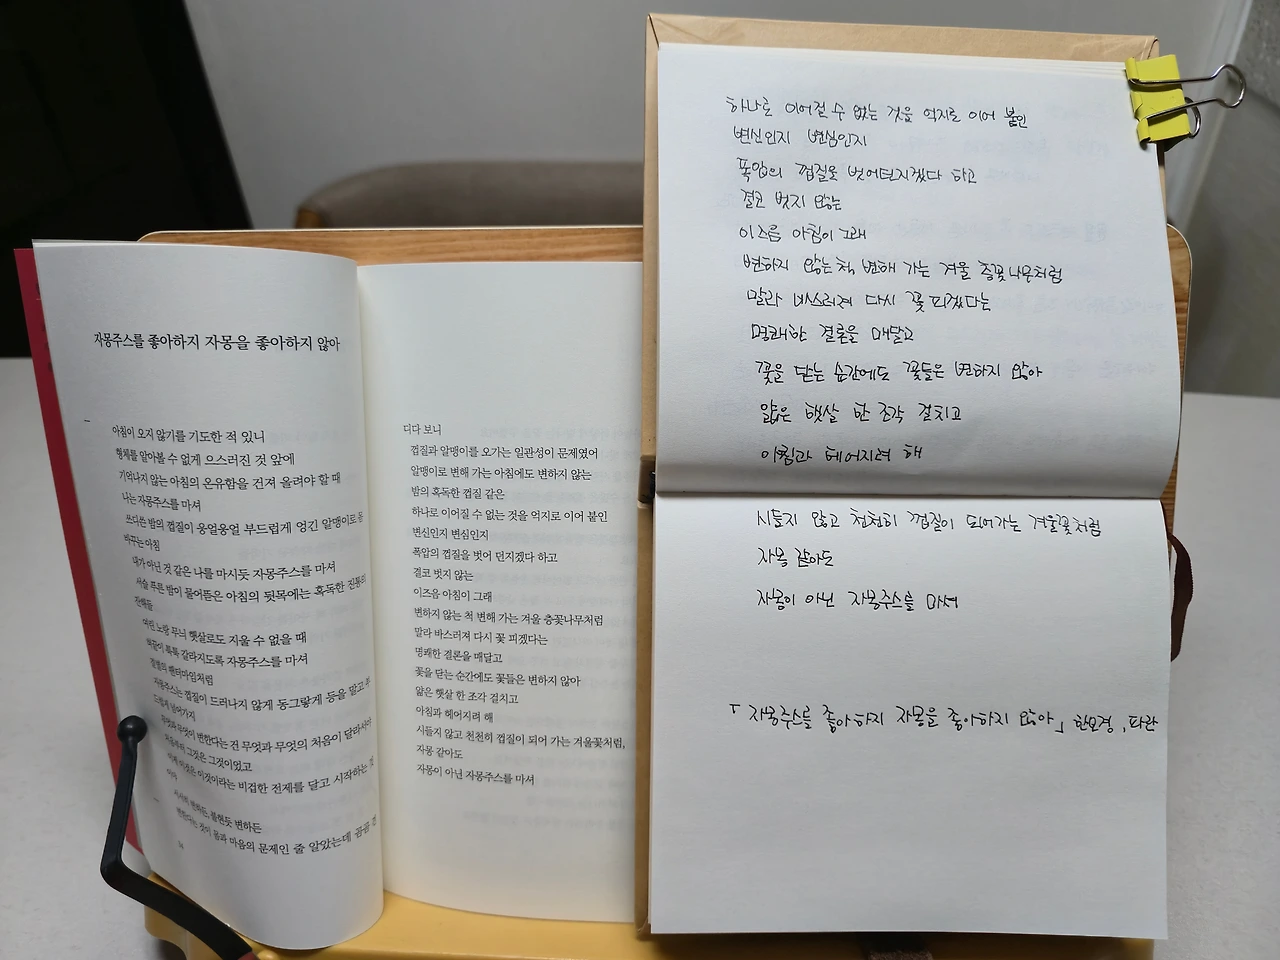 자몽주스를 좋아하지 자몽을 좋아하지 않아
아침이 오지 않기를 기도한 적 있니
형체를 알아볼 수 없게 으스러진 것 앞에
기억나지 않는 아침의 온유함을 건져 올려야 할 때
나는 자몽주스를 마셔
쓰디쓴 밤의 껍질이 웅얼웅얼 부드럽게 엉긴 알맹이로 몸
바꾸는 아침
내가 아닌 것 같은 나를 마시듯 자몽주스를 마셔
서슬 푸른 밤이 물어뜯은 아침의 뒷목에는 혹독한 진통의
잔해들
여린 노랑 무늬 햇살로도 지울 수 없을 때
혀끝이 툭툭 갈라지도록 자몽주스를 마셔
결별의 팬터마임처럼
자몽주스는 껍질이 드러나지 않게 동그랗게 등을 말고 부
드럽게 넘어가지
무엇과 무엇이 변한다는 건 무엇과 무엇의 처음이 달라서야
처음부터 그것은 그것이었고
이것은 이것이라는 비겁한 전제를 달고 시작하는
서서히 변하든, 불현듯 변하든
변한다는 것이 몸과 마음의 문제인 줄 알았는데 곰곰
14
디다 보니
껍질과 알맹이를 오가는 일관성이 문제였어
알맹이로 변해 가는 아침에도 변하지 않는
밤의 혹독한 껍질 같은
하나로 이어질 수 없는 것을 억지로 이어 붙인
변신인지 변심인지
폭압의 껍질을 벗어 던지겠다 하고
결코 벗지 않는
이즈음 아침이 그래
변하지 않는 척 변해 가는 겨울 층꽃나무처럼
말라 바스러져 다시 꽃 피겠다는
명쾌한 결론을 매달고
꽃을 닫는 순간에도 꽃들은 변하지 않아
얇은 햇살 한 조각 걸치고
아침과 헤어지려 해
시들지 않고 천천히 껍질이 되어 가는 겨울꽃처럼,
자몽 같아도
자몽이 아닌 자몽주스를 마셔
하나로 이어질 수 없는 것을 억지로 이어 붙인
변신인지 변심인지
폭압의 껍질을 벗어던지겠다 하고
결코 벗지 않는
이즈음 아침이 그래
변하지 않는 척 변해 가는 겨울 층꽃나무처럼
말라 바스러져 다시 꽃 피겠다는
명쾌한 결론을 매달고
꽃을 닫는 순간에도 꽃들은 변하지 않아
얇은 햇살 한 조각 걸치고
아침과 헤어지려 해
시들지 않고 천천히 껍질이 되어가는 겨울꽃처럼
자몽 같아도
자몽이 아닌 자몽주스를 마셔
「자몽주스를 좋아하지 자몽을 좋아하지 않아」 한보경, 파란